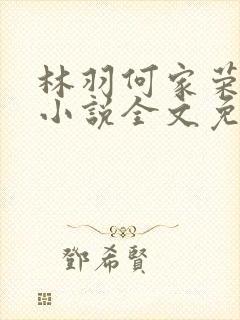 林羽何家荣
小説全文免
鄧希賢